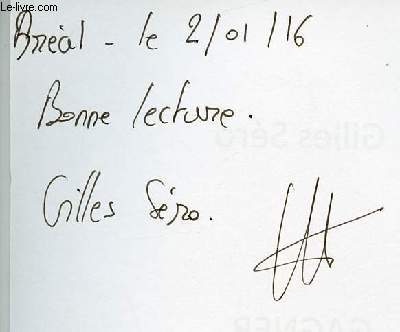 Le-livre.com
Bréal - le 2/01/16
Bonne lecture.
Gilles Séro
Gilles Séro.
GAGNER